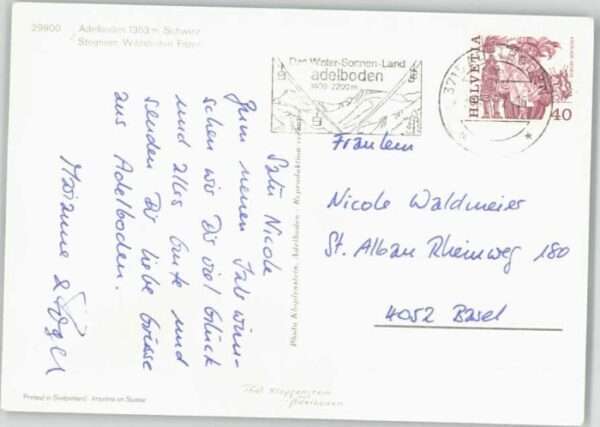 29900 Adelboden 1353 m Schweiz
Das Winter-Sonnen-Land
adelboden
1400-2200 m
HELVETIA
40
Salü Nicole
Zum neuen Jahr wün-
schen wir Dir viel Glück
und alles Gute und
senden Dir liebe Grüsse
aus Adelboden.
Marianne &
Fräulein
Nicole Waldmeier
St. Alban Rheinweg 180
4052 Basel
Photo Klopfenstein, Adelboden - Reproduktion
Printed in Switzerland Imprimé en Suisse